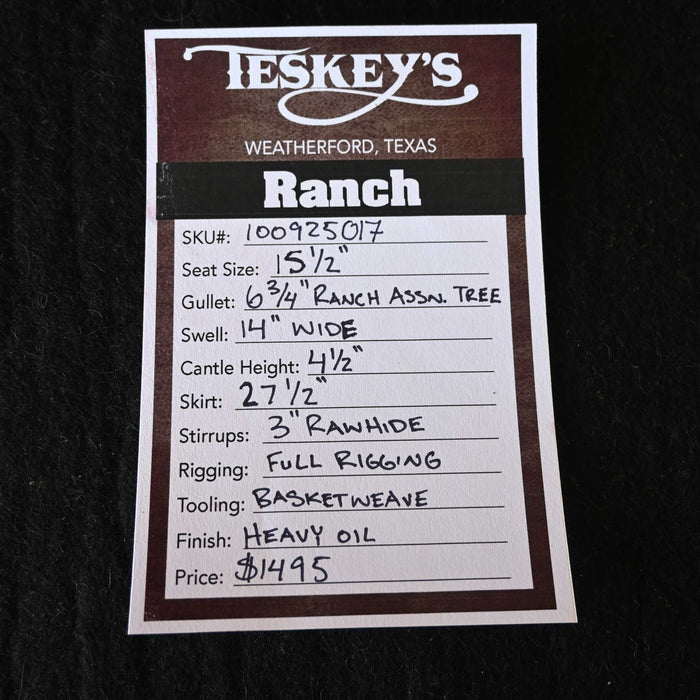 TESKEY'S
WEATHERFORD, TEXAS
Ranch
SKU#: 100925017
Seat Size: 15 1/2"
Gullet: 6 3/4" RANCH ASSN. TREE
Swell: 14" WIDE
Cantle Height: 4 1/2"
Skirt: 27 1/2"
Stirrups: 3" RAWHIDE
Rigging: FULL RIGGING
Tooling: BASKETWEAVE
Finish: HEAVY OIL
Price: $1495